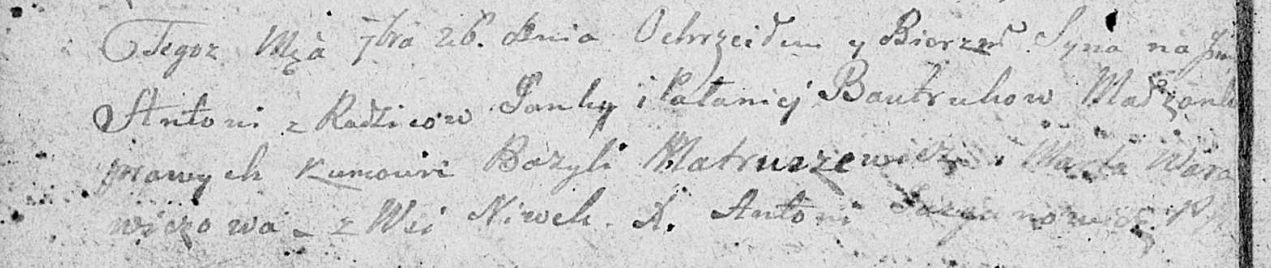 Tegoż Mca 7bra 26. dnia Ochrzciłem y Bierzm Syna na Jm
Antoni z Radziców Janky i Pałaniej Bautrukow Małżonk
prawych Kumowie Bazyli Matruszewicz i Marta Wara
wiczowa z Wsi Niwek. X. Antoni